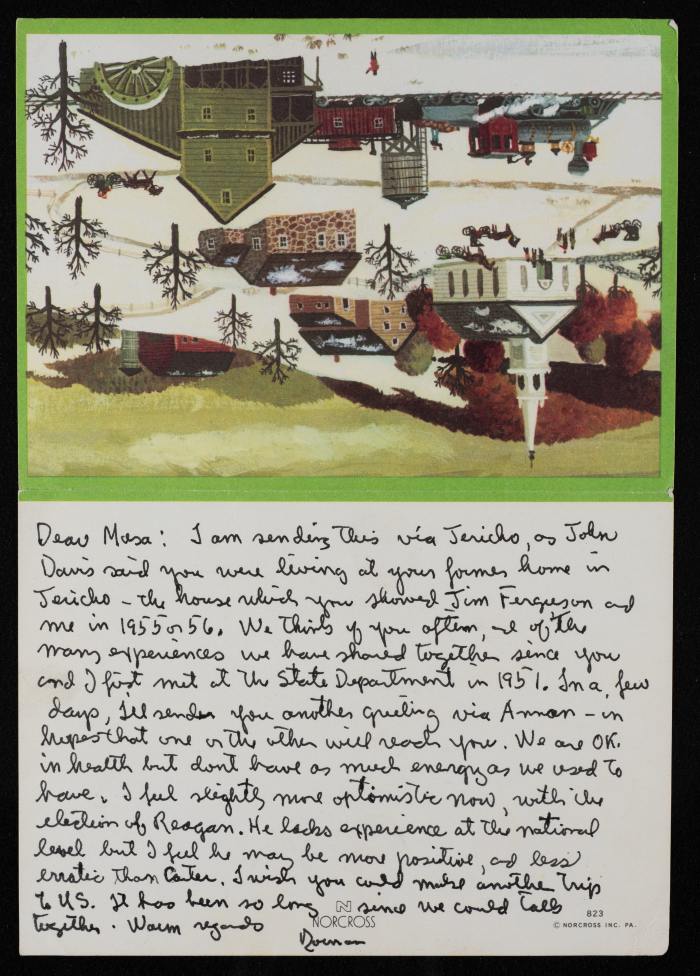 Dear Musa: I am sending this via Jericho, as John
Davis said you were living at your former home in
Jericho - the house which you showed Jim Ferguson and
me in 1955 or 56. We think of you often, and of the
many experiences we have shared together since you
and I first met at the State Department in 1951. In a few
days, I'll send you another greeting via Amman - in
hopes that one or the other will reach you. We are OK.
in health but don't have as much energy as we used to
have. I feel slightly more optomistic now, with the
election of Reagan. He lacks experience at the national
level but I feel he may be more positive, and less
erratic than Carter. I wish you could make another trip
to US. It has been so long since we could talk
together. Warm regards
Norman
N
NORCROSS
823
© NORCROSS INC. PA.